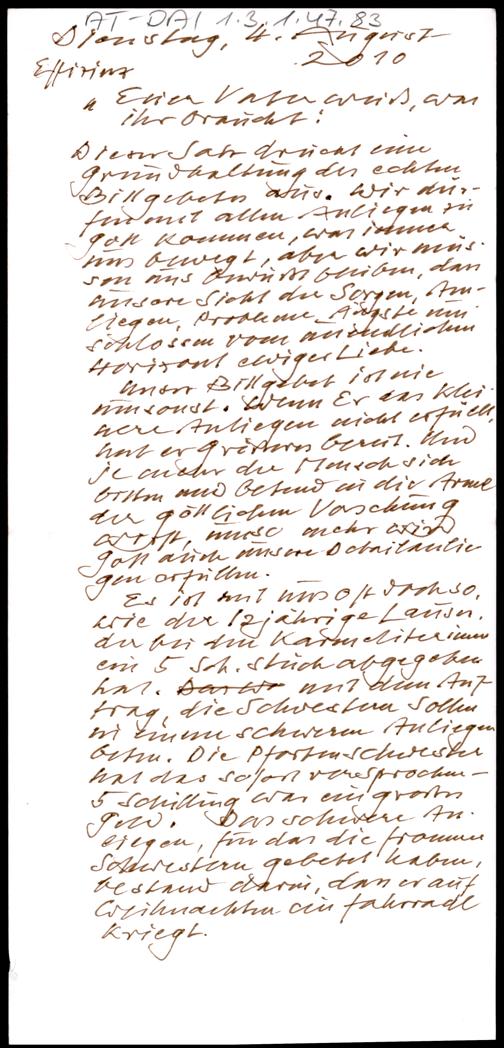 AT-DAI 1.3.1.47.83
Dienstag, 4. August
2010
"Euer Vater weiß, was
ihr braucht!
Dieser Satz drückt eine
Grundhaltung des echten
Bittgebetes aus. Wir dür-
fen mit allen Anliegen zu
Gott kommen, was immer
uns bewegt, aber wir müs-
sen uns bewußt bleiben, dass
unsere Sicht der Sorgen, An-
liegen, Probleme, Ängste um
schlossen vom unendlichen
Horizont ewiger Liebe.
Unser Bittgebet ist nie
umsonst. Wenn Er das klei
nere Anliegen nicht erfüllt,
hat er Größeres bereit. Und
je mehr der Mensch sich
bittend und betend in die Arme
der göttlichen Vorsehung
wirft, umso mehr wird
Gott auch unsere Detailanlie
gen erfüllen.
Es ist mit uns oft doch so,
wie der 12jährige
der bei den Karmeliterinnen
ein 5 Sch. Stück abgegeben
hat. mit dem Auf-
trag, die Schwestern sollen
in einem schweren Anliegen
beten. Die Pfortenschwester
hat das sofort versprochen -
5 Schilling war ein großes
Geld. Das schwere An-
liegen, für das die frommen
Schwestern gebetet haben,
bestand darin, dass er auf
Weihnachten ein Fahrradl
kriegt.